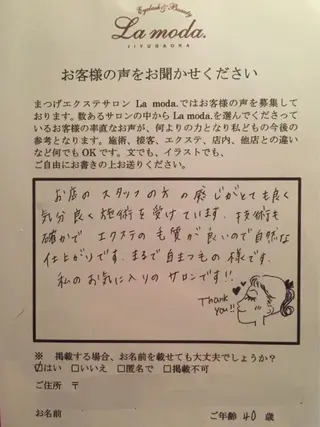 Eyelash & Beauty
La moda.
JIYUGAOKA
お客様の声をお聞かせください
まつげエクステサロン La moda.ではお客様の声を募集して
おります。数あるサロンの中から La moda.を選んでくださってい
るお客様の率直なお声が、何よりの力となり私どもの今後の
参考となります。施術、接客、エクステ、店内、他店との違い
など何でもOKです。文でも、イラストでも、
ご自由にお書きの上お送りください。
お店のスタッフの方の感じがとても良く
気分良く施術を受けています。技術も
確かで エクステの毛質が良いので自然な
仕上がりです。まるで自まつ毛の様です。
私のお気に入りのサロンです!!
Thank
you!!
※ 掲載する場合、お名前を載せても大丈夫でしょうか?
☑はい □いいえ □匿名で □掲載不可
ご住所 〒
お名前 ご年齢 40 歳